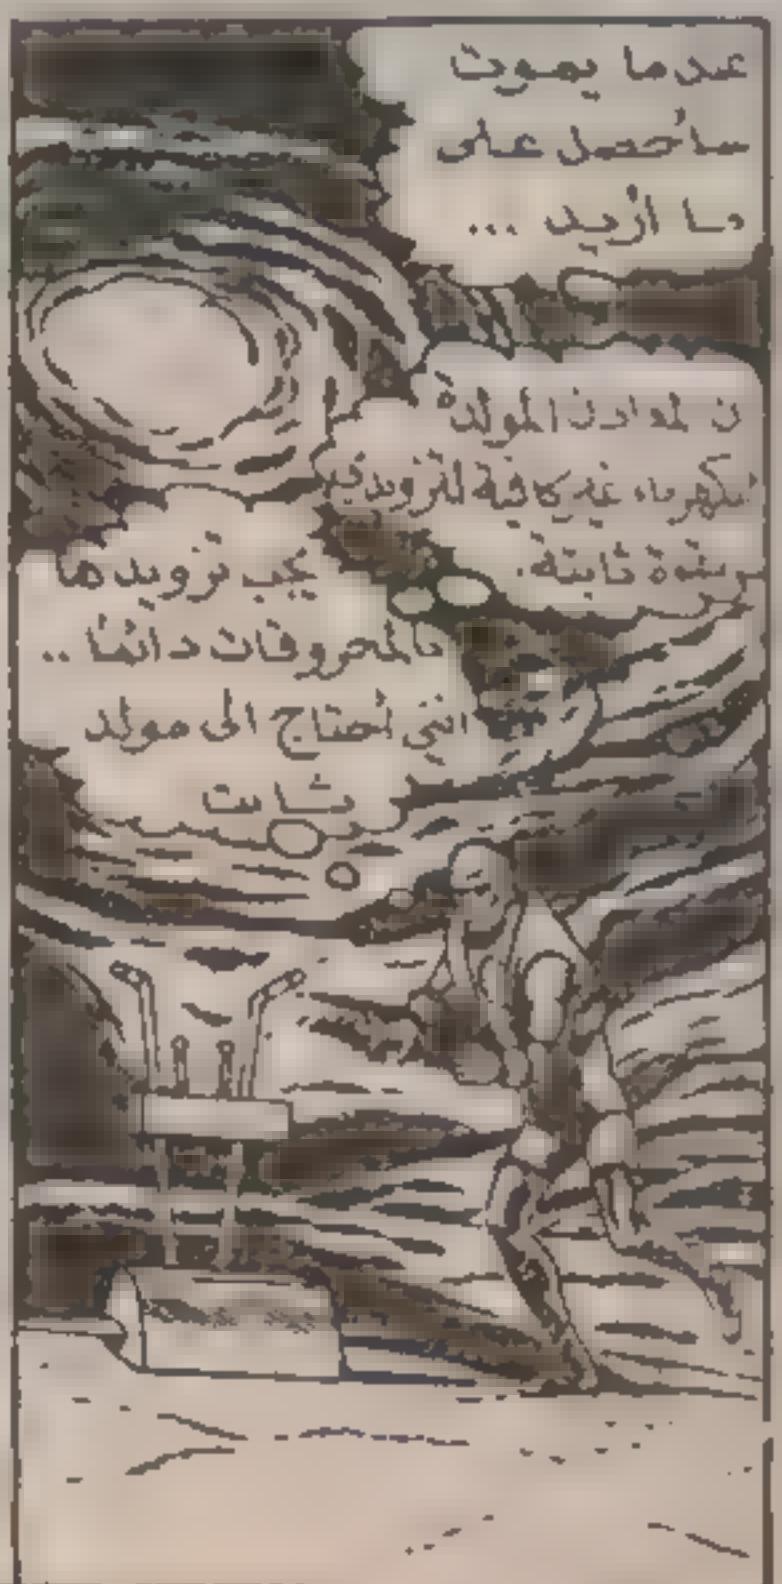 عندما يموت
سأحصل على
ما أريد ...
المولدة
غير كافية لتزويدي
بقوة ثابتة.
يجب تزويدها
بالمحروقات دائمًا ..
انني احتاج الى مولد
ثابت